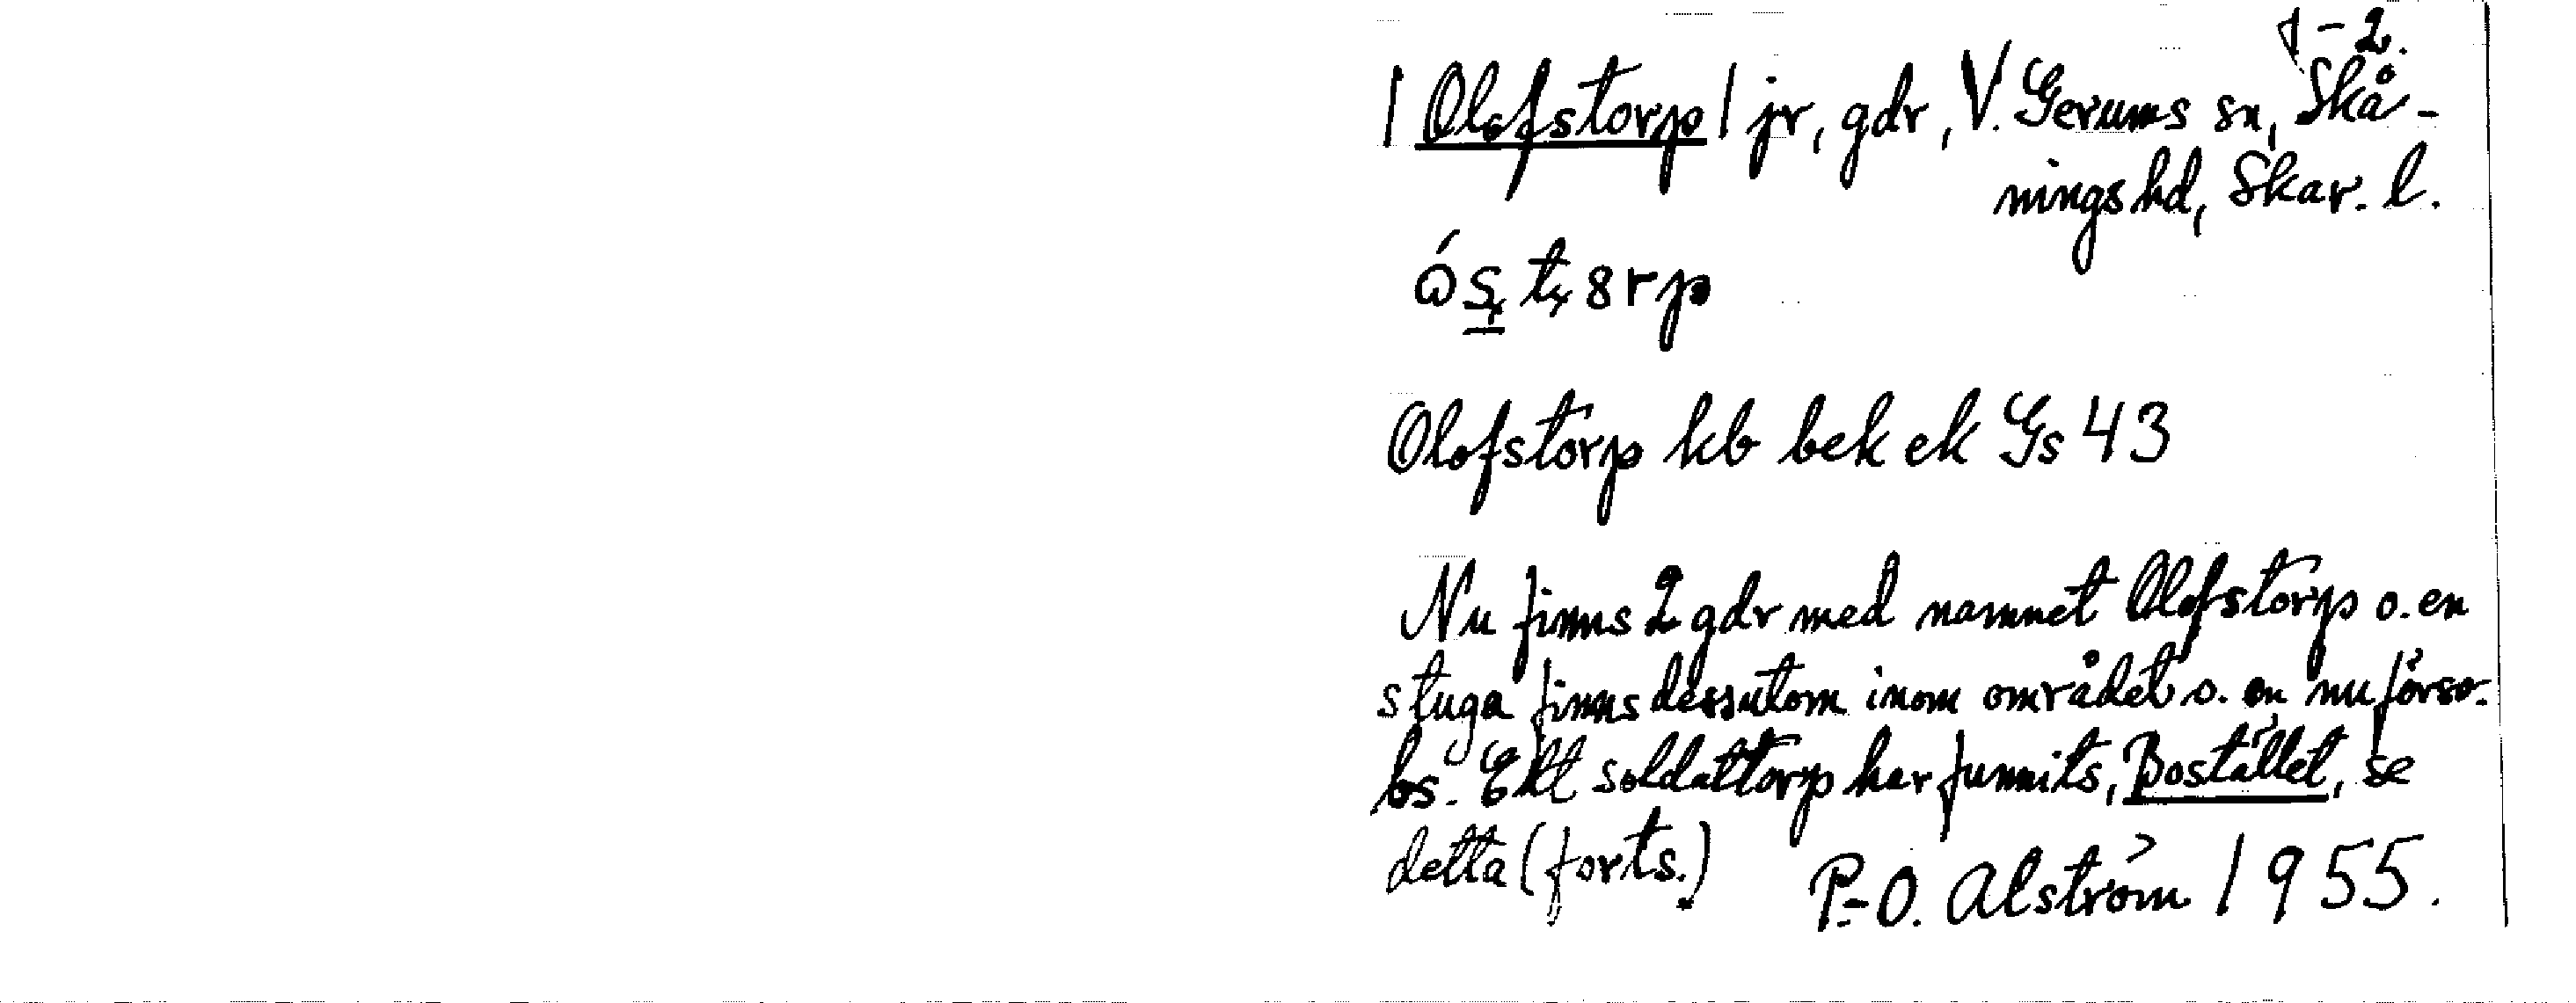 1-2.
| Olofstorp | jr, gdr, V. Gerums sn, Skå-
nings hd, Skar. l.
Olofstorp kb bek ek Gs 43
Nu finns 2 gdr med namnet Olofstorp o. en
stuga finns dessutom inom området o. en nu förso.
bs. Ett soldattorp har funnits, Bostället, se
detta (forts.)
P-O. Alström 1955.